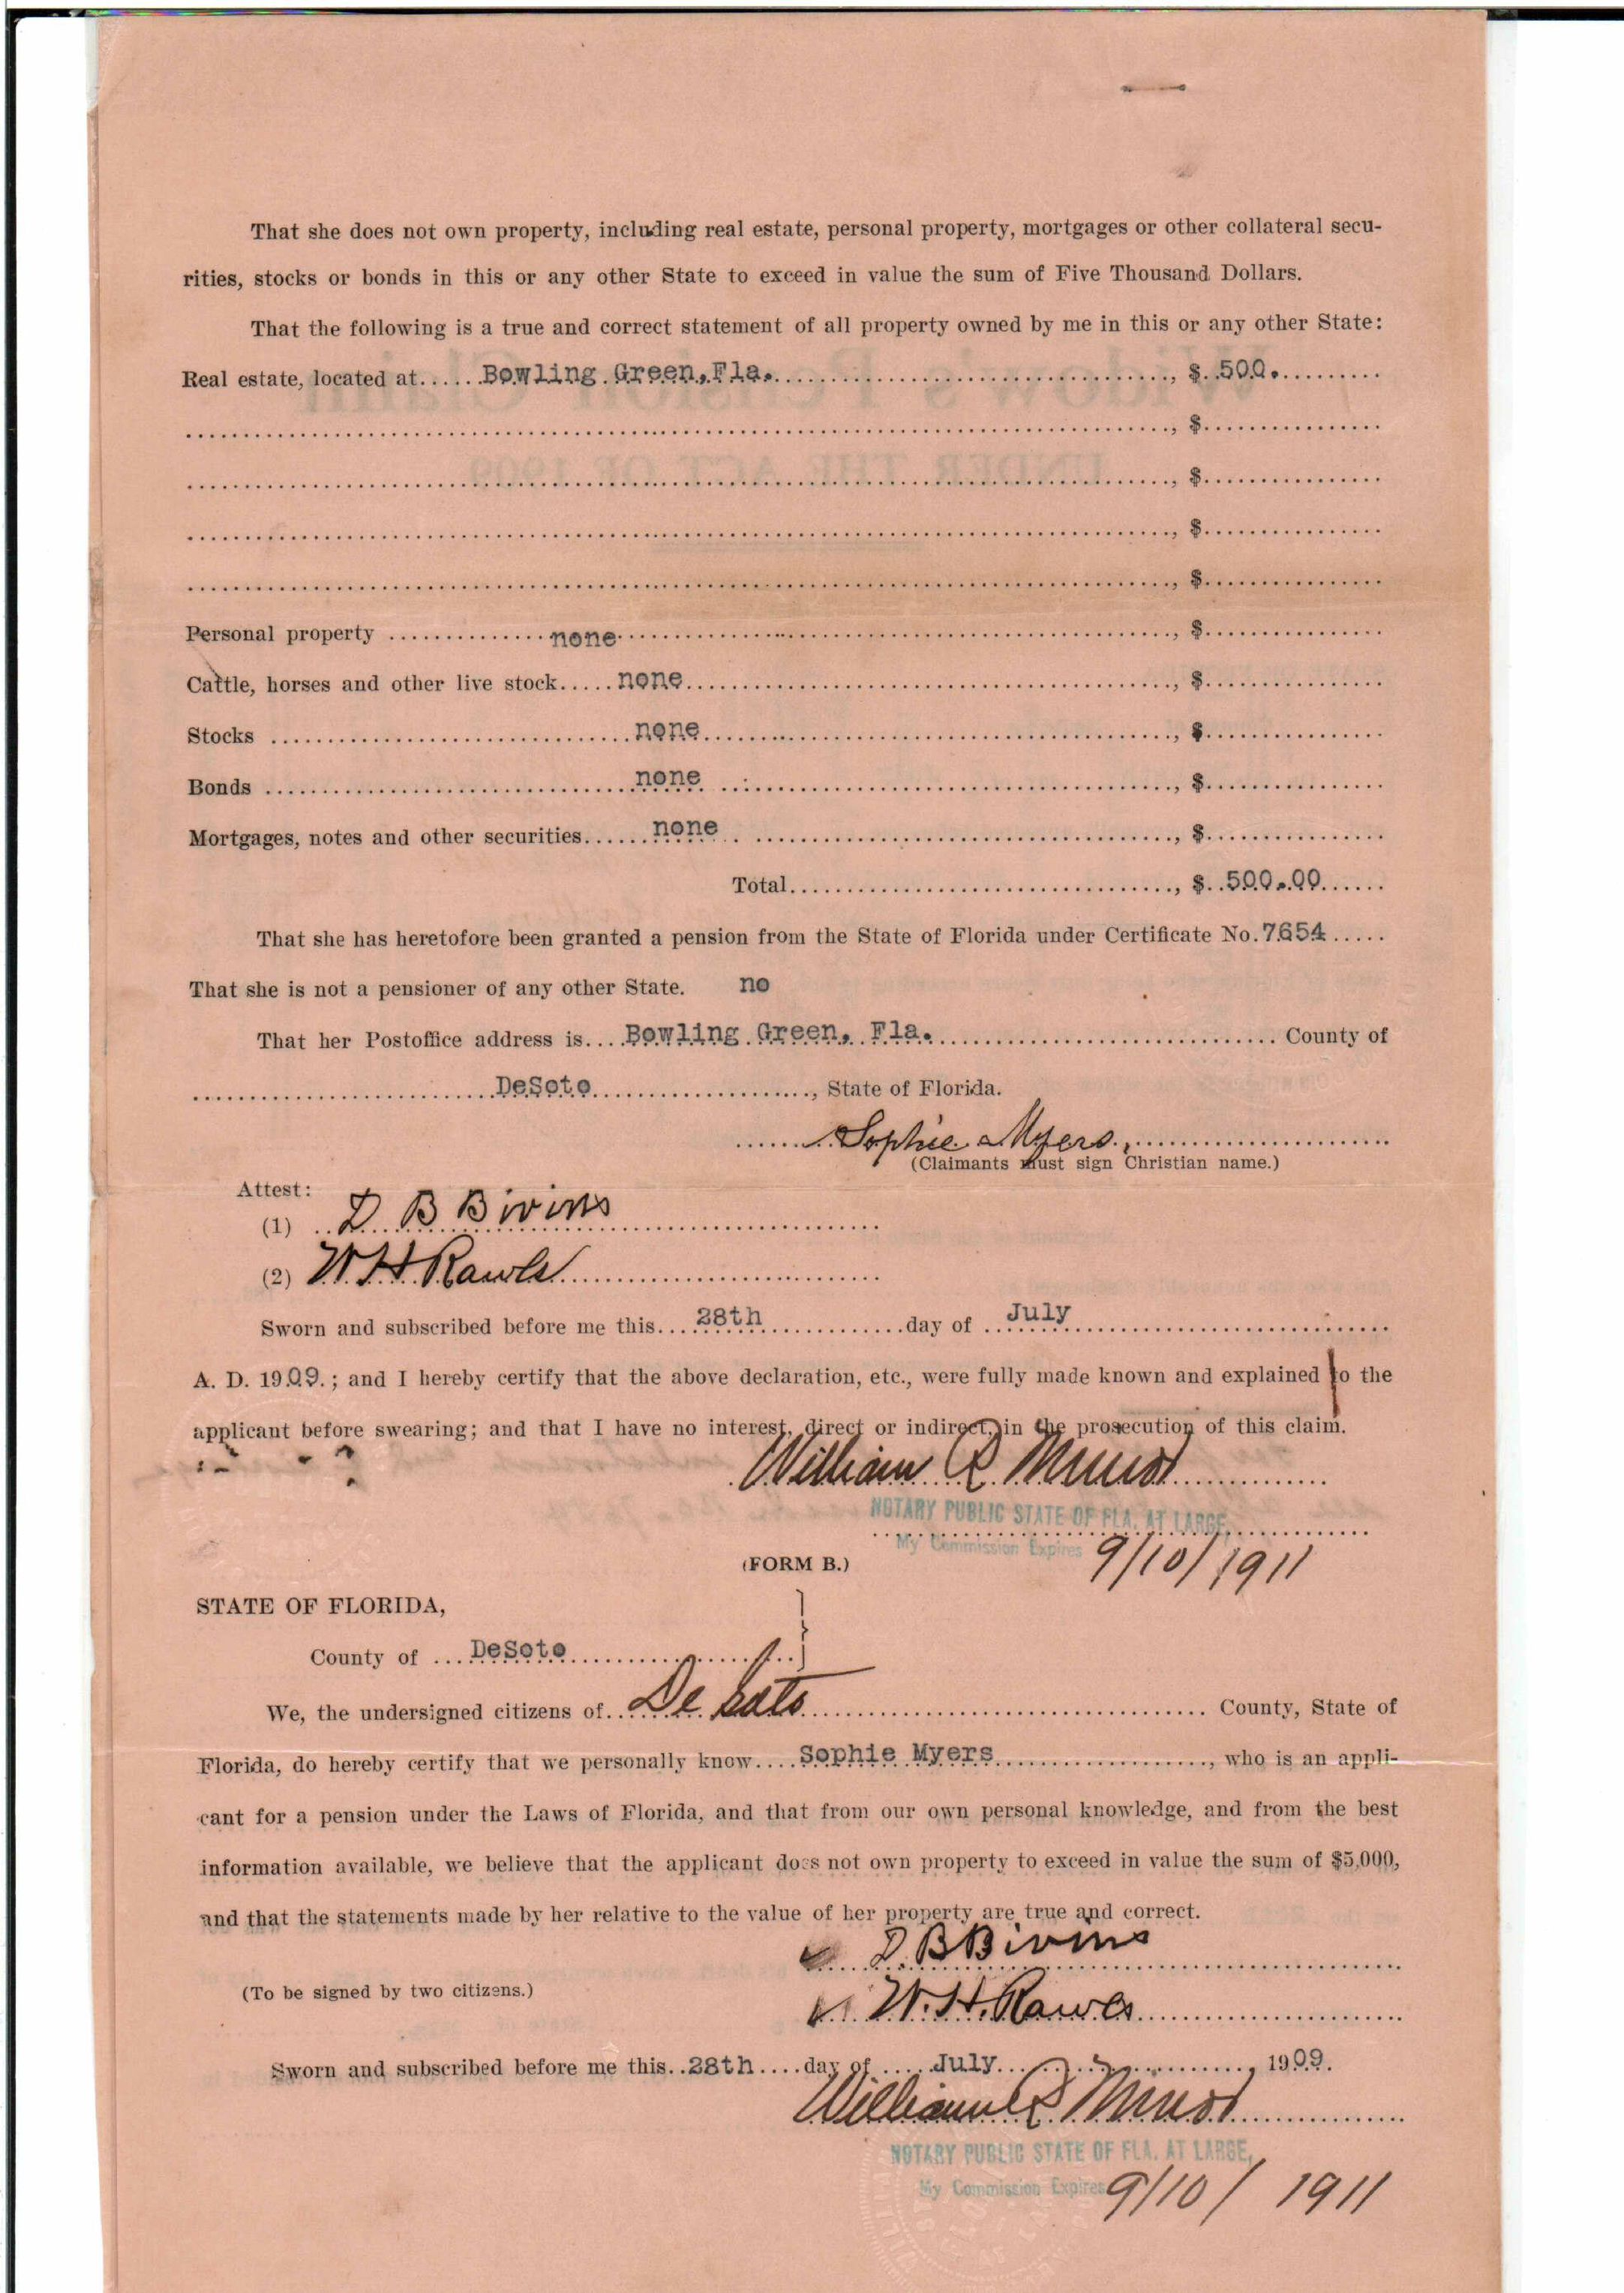 That she does not own property, including real estate, personal property, mortgages or other collateral secu-
rities, stocks or bonds in this or any other State to exceed in value the sum of Five Thousand Dollars.
That the following is a true and correct statement of all property owned by me in this or any other State:
Real estate, located at......Bowling Green, Fla. ............, $ 500.
............, $............
............, $............
............, $............
............, $............
Personal property ............none............, $............
Cattle, horses and other live stock.....none............, $............
Stocks ............none............, $............
Bonds ............none............, $............
Mortgages, notes and other securities......none............, $............
Total............, $ 500.00
That she has heretofore been granted a pension from the State of Florida under Certificate No. 7654.....
That she is not a pensioner of any other State. no
That her Postoffice address is....Bowling Green, Fla. ............ County of
............DeSoto............, State of Florida.
Sophie Myers.
(Claimants must sign Christian name.)
Attest:
(1) D B Bivins
(2) W. H. Rawls
Sworn and subscribed before me this....28th............day of ......July............
A. D. 1909.; and I hereby certify that the above declaration, etc., were fully made known and explained to the
applicant before swearing; and that I have no interest, direct or indirect, in the prosecution of this claim.
William R
NOTARY PUBLIC STATE OF FLA. AT LARGE,
My Commission Expires 9/10/1911
(FORM B.)
STATE OF FLORIDA,
County of ....DeSoto............
We, the undersigned citizens of....De Soto............ County, State of
Florida, do hereby certify that we personally know....Sophie Myers............, who is an appli-
cant for a pension under the Laws of Florida, and that from our own personal knowledge, and from the best
information available, we believe that the applicant does not own property to exceed in value the sum of $5,000,
and that the statements made by her relative to the value of her property are true and correct.
D. B Bivins
(To be signed by two citizens.)
W. H. Rawls
Sworn and subscribed before me this..28th....day of .....July............, 1909.
William R
NOTARY PUBLIC STATE OF FLA. AT LARGE,
My Commission Expires 9/10/1911